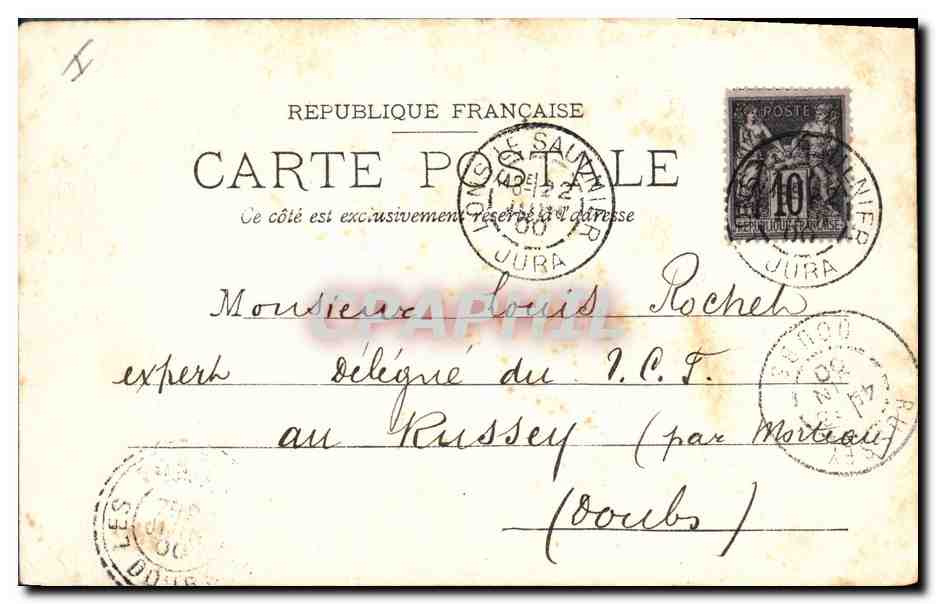 REPUBLIQUE FRANÇAISE
CARTE POSTALE
Ce côté est exclusivement réservé à l'adresse
LONS-LE-SAUNIER
22
JUIN
00
JURA
POSTE
10
REPUBLIQUE FRANÇAISE
JURA
Monsieur Louis Rochet
expert Délégué du T.C.F.
au Russey (par Morteau)
(Doubs)
DOUBS
00
LES
00
DOUBS
CPAPHIL